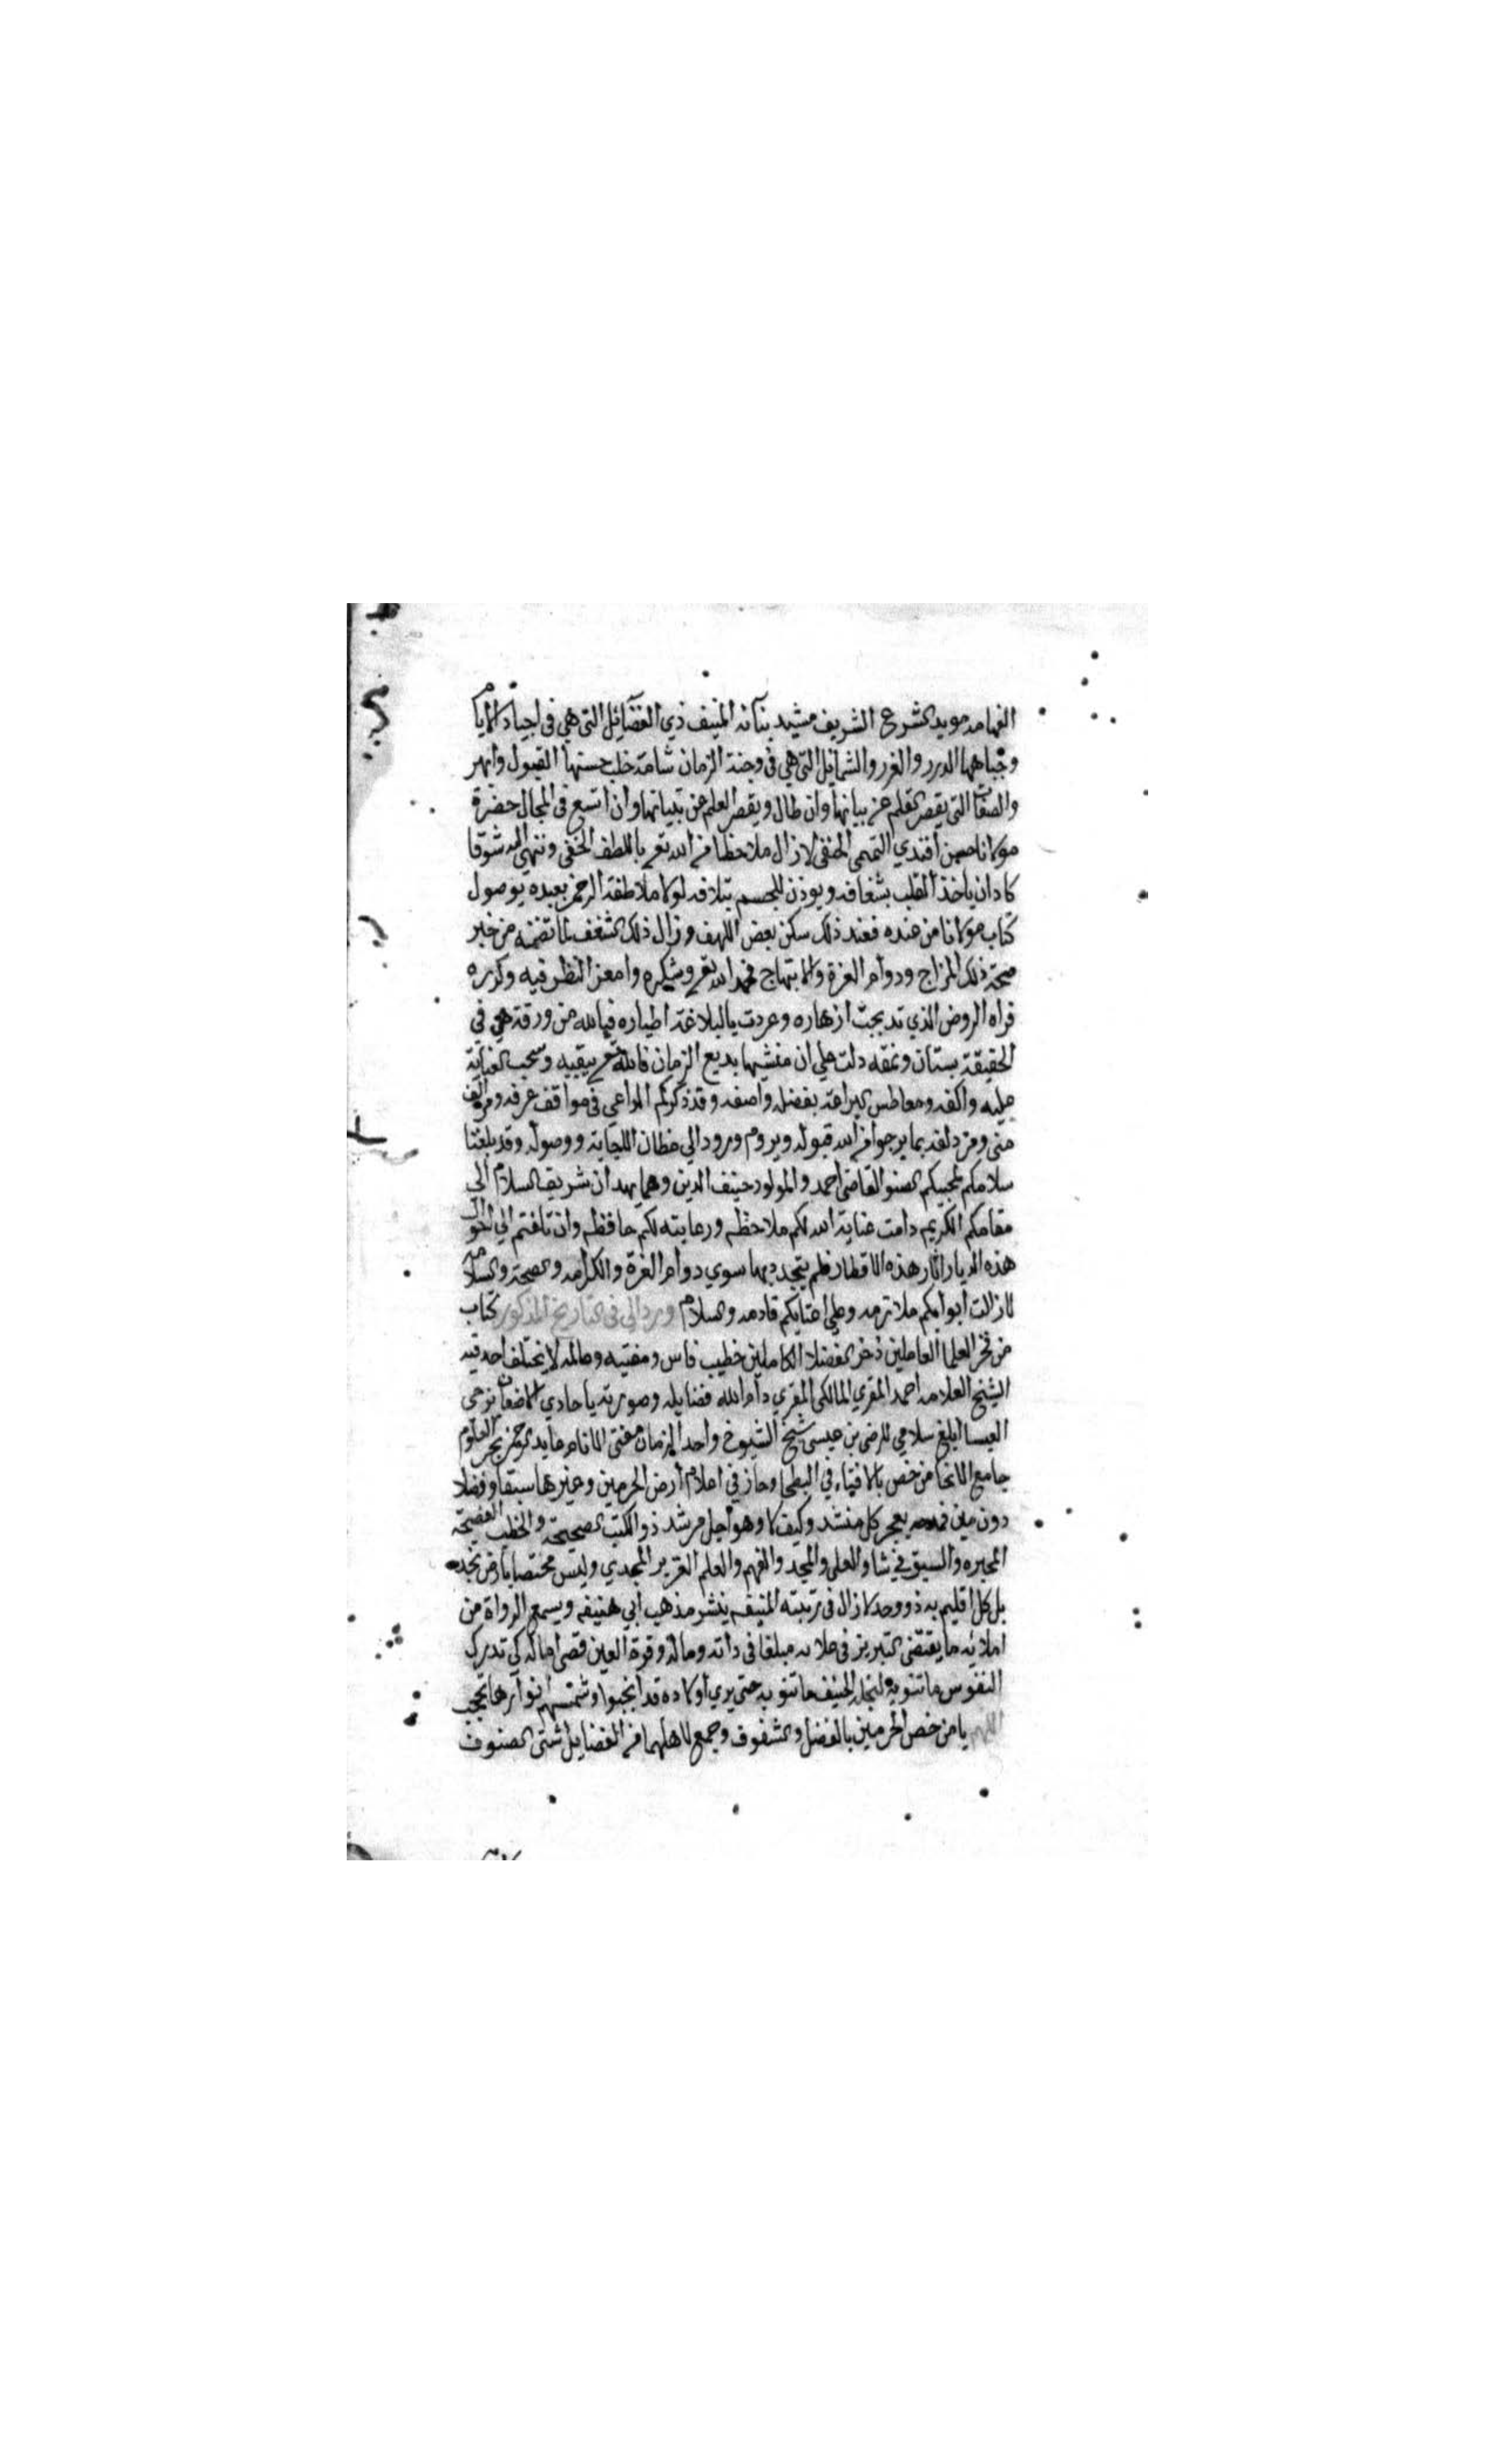 الفهامه مويد الشرع الشريف مشيد بنآئه المنيف ذي الفضآئل التي هي في اجياد الايام
وجباهها الدرر والغرر والشمائل التي هي في وجنة الزمان شامة خلب حسنها القبول وابهر
والصفات التي يقصر القلم عن بيانها وان طال ويقصر العلم عن تبيانها وان اتسع في المجال حضرة
مولانا حسن أفندي التميمي الحنفي لازال ملاحظا من الله تعـ باللطف الخفي وننهي اليه شوقا
كاد ان ياخذ القلب بشغافه ويوذن للجسم بتلافه لولا ملاطفة الرحمن بعبده بوصول
كتاب مولانا من عنده فعند ذلك سكن بعض اللهف وزال ذلك الشغف لما تضمنه من خبر
صحة ذلك المزاج ودوام العزة والابتهاج فحمد الله تعـ وشكره وامعن النظر فيه وكرره
فراه الروض الذي تدبجت ازهاره وغردت بالبلاغة اطياره فيالله من ورقة هي في
الحقيقة بستان ونمقه دلت علي ان منشيها بديع الزمان فالله تعـ يبقيه وسحب العناية
عليه واكفه ومعاطس البراعة بفضله واصفه وقد ذكركم الداعي في مواقف عرفه ومزالف
منى ومزدلفه بما يرجوا من الله قبوله ويروم وروده الي مظان اللجابة ووصوله وقد بلغنا
سلامكم لمحبيكم الصنو القاضي احمد والمولود حنيف الدين وهما يهدان شريف السلام الي
مقامكم الكريم دامت عناية الله لكم ملاحظه ورعايته لكم حافظه وان تلفتم الي احوال
هذه الديار واثار هذه الاقطار فلم يتجدد بها سوي دوام العزة والكرامه والصحة والسلامه
لازالت ابوابكم ملازمه وعلي اعتابكم قادمه والسلام وورد الي في التاريخ المذكور كتاب
من فخر العلما العاملين ذخر الفضلا الكاملين خطيب فاس ومفتيه وعالمه لا يختلف احد فيه
الشيخ العلامه احمد المقري المالكي المقري دام الله فضايله وصورته يا حادي الاضعان يزجي
العيسا ابلغ سلامي للرضي بن عيسى شيخ الشيوخ واحد الزمان مفتي الانام عابد الرحمن بحر العلوم
جامع الانحا من خص بالافتاء في البطحا وحاز في اعلام أرض الحرمين وغيرها سبقا وفضلا
دون مين فمدحه يعجز كل منشد وكيف لا وهو اجل مرشد ذو الكتب الصحيحة والخطب الفصيحة
المحبره والسبق في شاو العلى والمجد والفهم والعلم الغزير المجدي وليس مختصا بارض نجد
بل كل اقليم به ذو وجد لازال في رتبته المنيفه ينشر مذهب أبي حنيفه ويسمع الرواة من
املائه ما يقتضي التبريز في علائه مبلغا في ذاته وماله وقرة العين قصى اماله كي تدرك
النفوس ما تنويه لنجله الحنيف ما تنويه حتى يري أولاده قد أنجبوا وشمسهم انوارها لا تحجب
اللهم يا من خص الحرمين بالفضل والشفوف وجمع لاهلهما من الفضايل شتى الصنوف